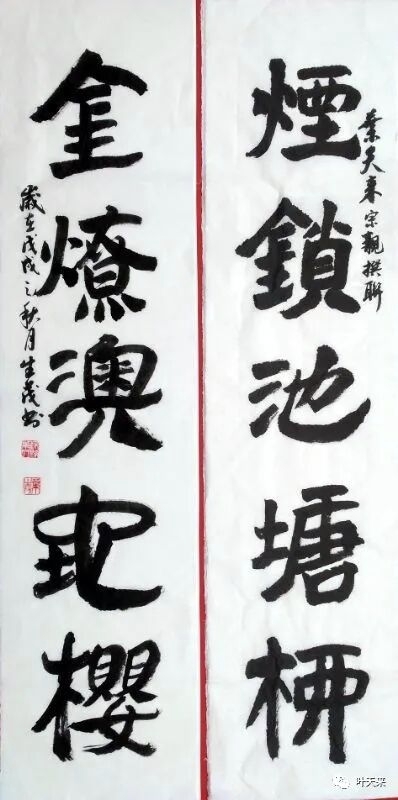 葉天来宗親撰聯
煙鎖池塘柳
金燎澳地櫻
歲在戊戌之秋月生茂书
叶天来